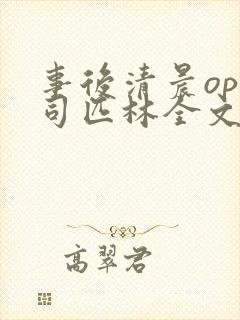 事後清晨op
司匹林全文
高翠君